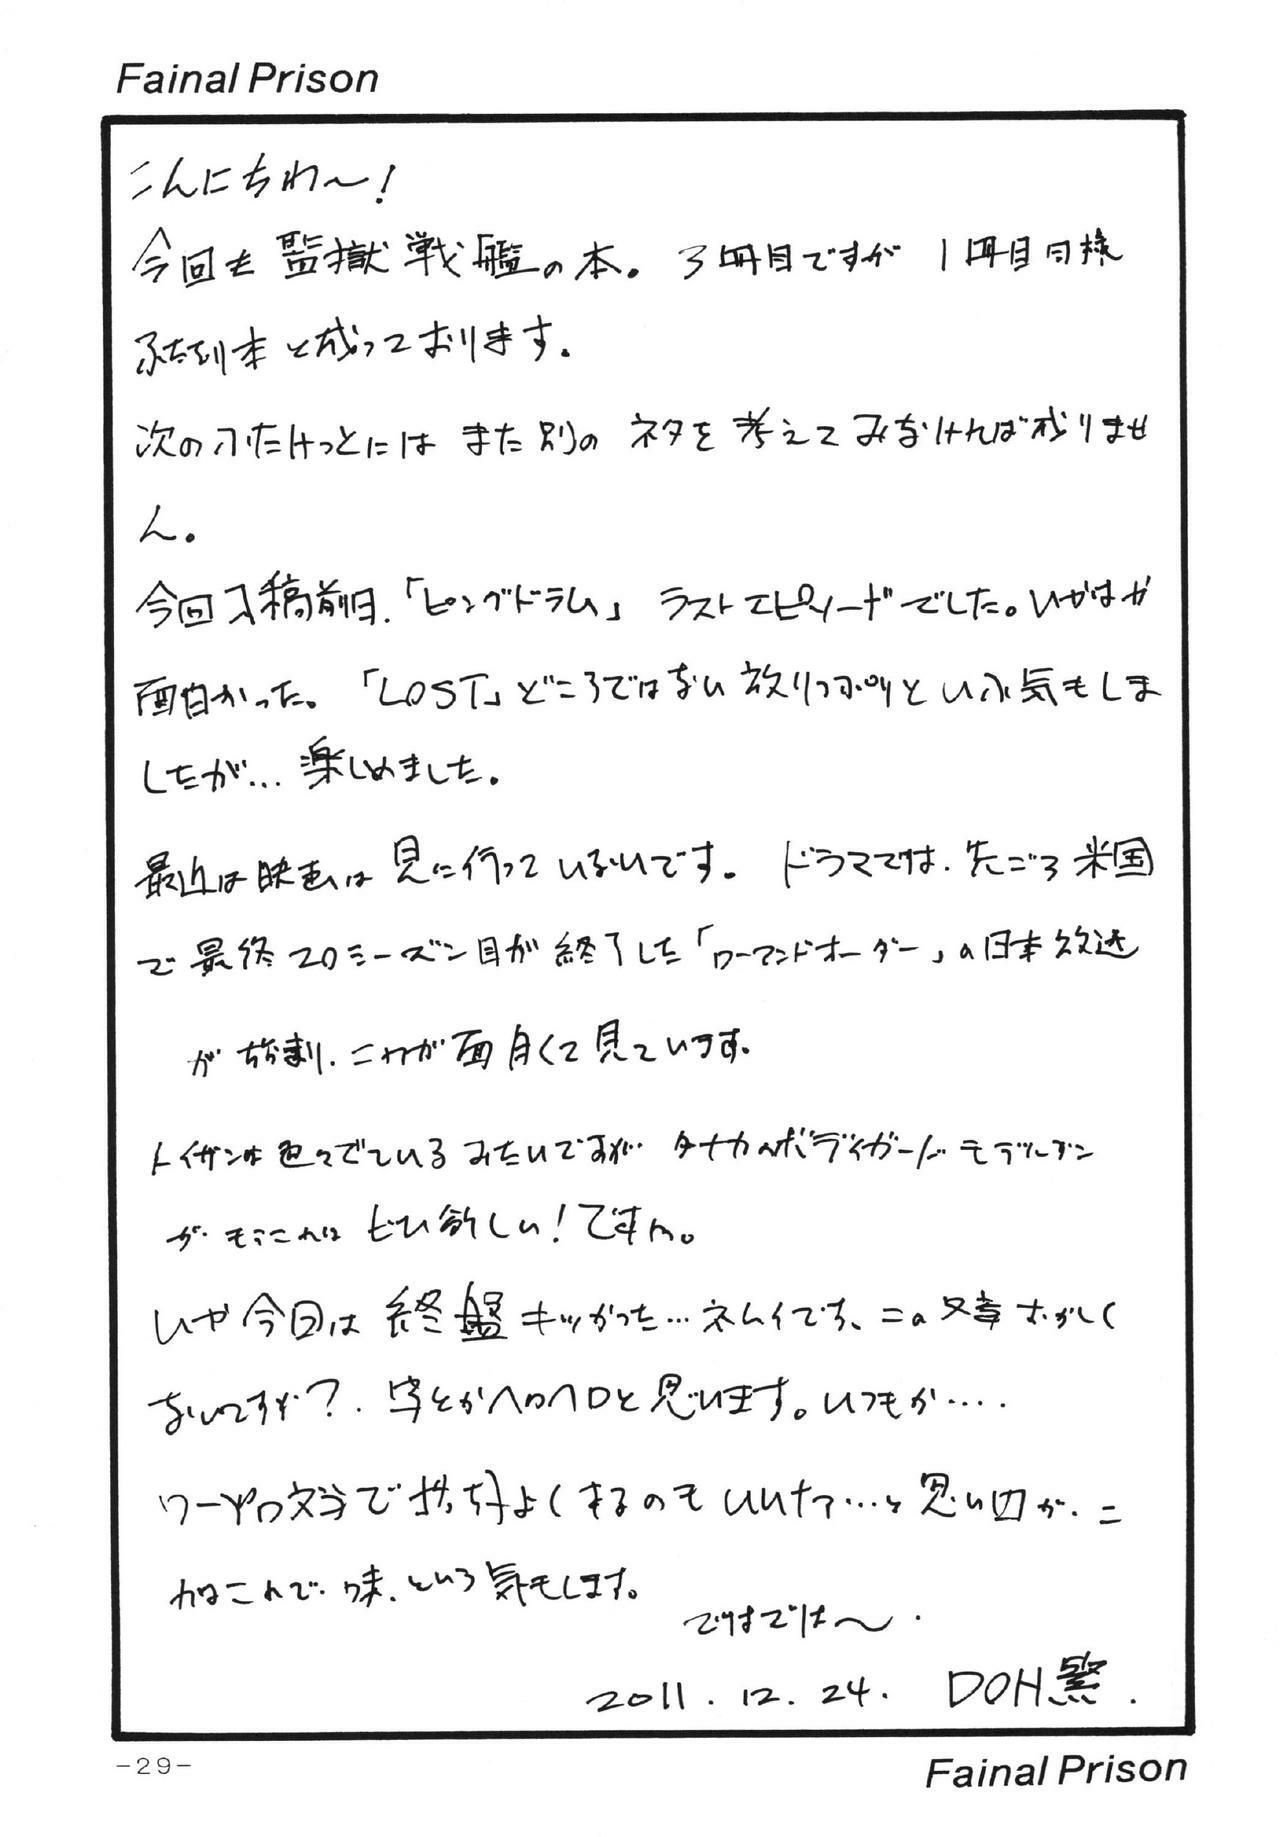 Fainal Prison
こんにちわ〜!
今回も監獄戦艦の本。3冊目ですが 1冊目同様
ふたなり本と成っております。
次のふたけっとには また別の ネタを考えてみなければ成りませ
ん。
今回入稿前日.「ピングドラム」 ラストエピソードでした。いやはや
面白かった。「LOST」どころではない放りっぷりといふ気もしま
したが… 楽しめました。
最近は映画は見に行っていないです。 ドラマでは、先ごろ米国
で最終20シーズン目が終了した「ローアンドオーダー」の日本放送
が始まり、これが面白くて見ています。
トイガンは色々でているみたいですが… タナカのボディガード モデルガン
が、もうこれは ぜひ欲しい!ですね。
いや今回は終盤キツかった… ネムイです、この文章 おかしく
ないですか?. 字とかヘロヘロと思います。いつもか‥‥
ワープロ文字で格好よくするのも いいなァ…と思いつつが、こ
れはこれで、味、という気もします。
ではでは〜.
2011.12.24. DOH繁.
-29-
Fainal Prison